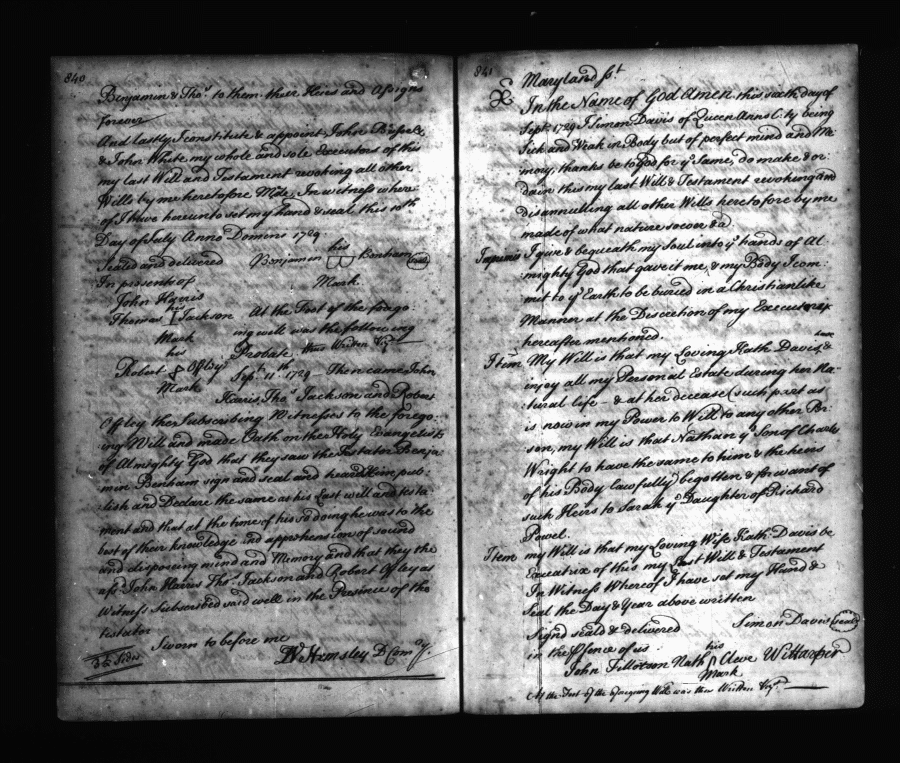 840
Benjamin & Thos. to them their Heirs and Assigns
forever
And lastly I constitute & appoint John
& John White my whole and sole Executors of this
my last Will and Testament revoking all other
Wills by me heretofore Made, In witness where
of I have hereunto set my hand & seal this 10th
Day of July Anno Domini 1729.
Sealed and delivered Benjamin his Benham (seal)
In presents of Mark
John Harris
Thomas his Jackson At the Foot of the forego
Mark ing will was the following
his Probate, thus Written Vizt
Robert & Offley Sept. 11th 1729 Then came John
Mark Harris Thos. Jackson and Robert
Offley the Subscribing Witnesses to the forego
ing Will and made Oath on the Holy Evangelists
of Almighty God that they saw the Testator Benja
min Benham sign and seal and heard him pub
lish and Declare the same as his Last will and testa
ment and that at the time of his so doing he was to the
best of their knowledge and apprehension of sound
and disposing mind and Memory and that they the
afd. John Harris Thos. Jackson and Robert Offley as
Witness Subscribed said well in the Presence of the
testator
Sworn to before me
3¼ Sides W Hemsley D Comry.
841
Maryland sst
In the Name of God Amen this sixth day of
Sept. 1729 I Simon Davis of Queen Anns C:ty being
Sick and Weak in Body but of perfect mind and Me
mory, thanks be to God for ye Same, do make & or:
dain this my last Will & Testament revoking and
disannulling all other Wills heretofore by me
made of what nature soever &a
Imprimis I give & bequeath my Soul into ye hands of Al
mighty God that gave it me, & my Body I com:
mit to ye Earth to be buried in a Christianlike
Manner at the Discretion of my Executorex
hereafter mentioned.
Item My Will is that my Loving Kath. Davis have &
injoy all my Personal Estate during her Na
tural life & at her decease (such part as
is now in my Power to Will to any other Per
son, my Will is that Nathan ye Son of Charles
Wright to have the same to him & the heirs
of his Body lawfully begotten & for want of
such Heirs to Sarah ye Daughter of Richard
Powel.
Item my Will is that my Loving Wife Kath. Davis be
Execatrix of this my Last Will & Testament
In Witness Whereof I have set my Hand &
Seal the Day & Year above written
Signd seald & delivered Simon Davis (seal)
in the psence of us his
John Tillotson Nath Cleve
Mark
At the Foot of the foregoing Will was thus Written Vizt.